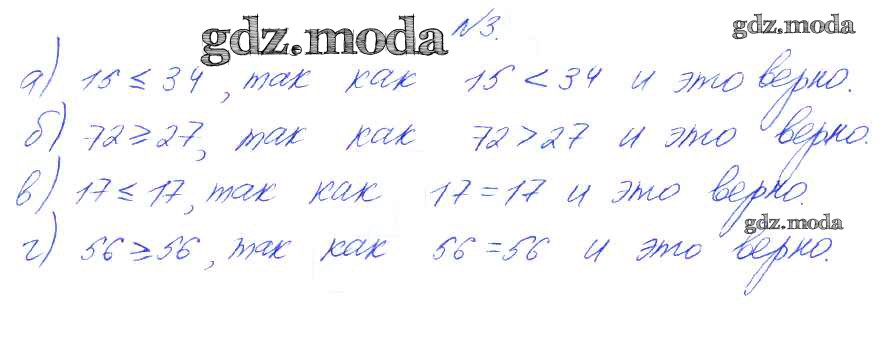 gdz.moda №3. gdz.moda
а) 15 ≤ 34, так как 15 < 34 и это верно.
б) 72 ≥ 27, так как 72 > 27 и это верно.
в) 17 ≤ 17, так как 17 = 17 и это верно.
gdz.moda
г) 56 ≥ 56, так как 56 = 56 и это верно.